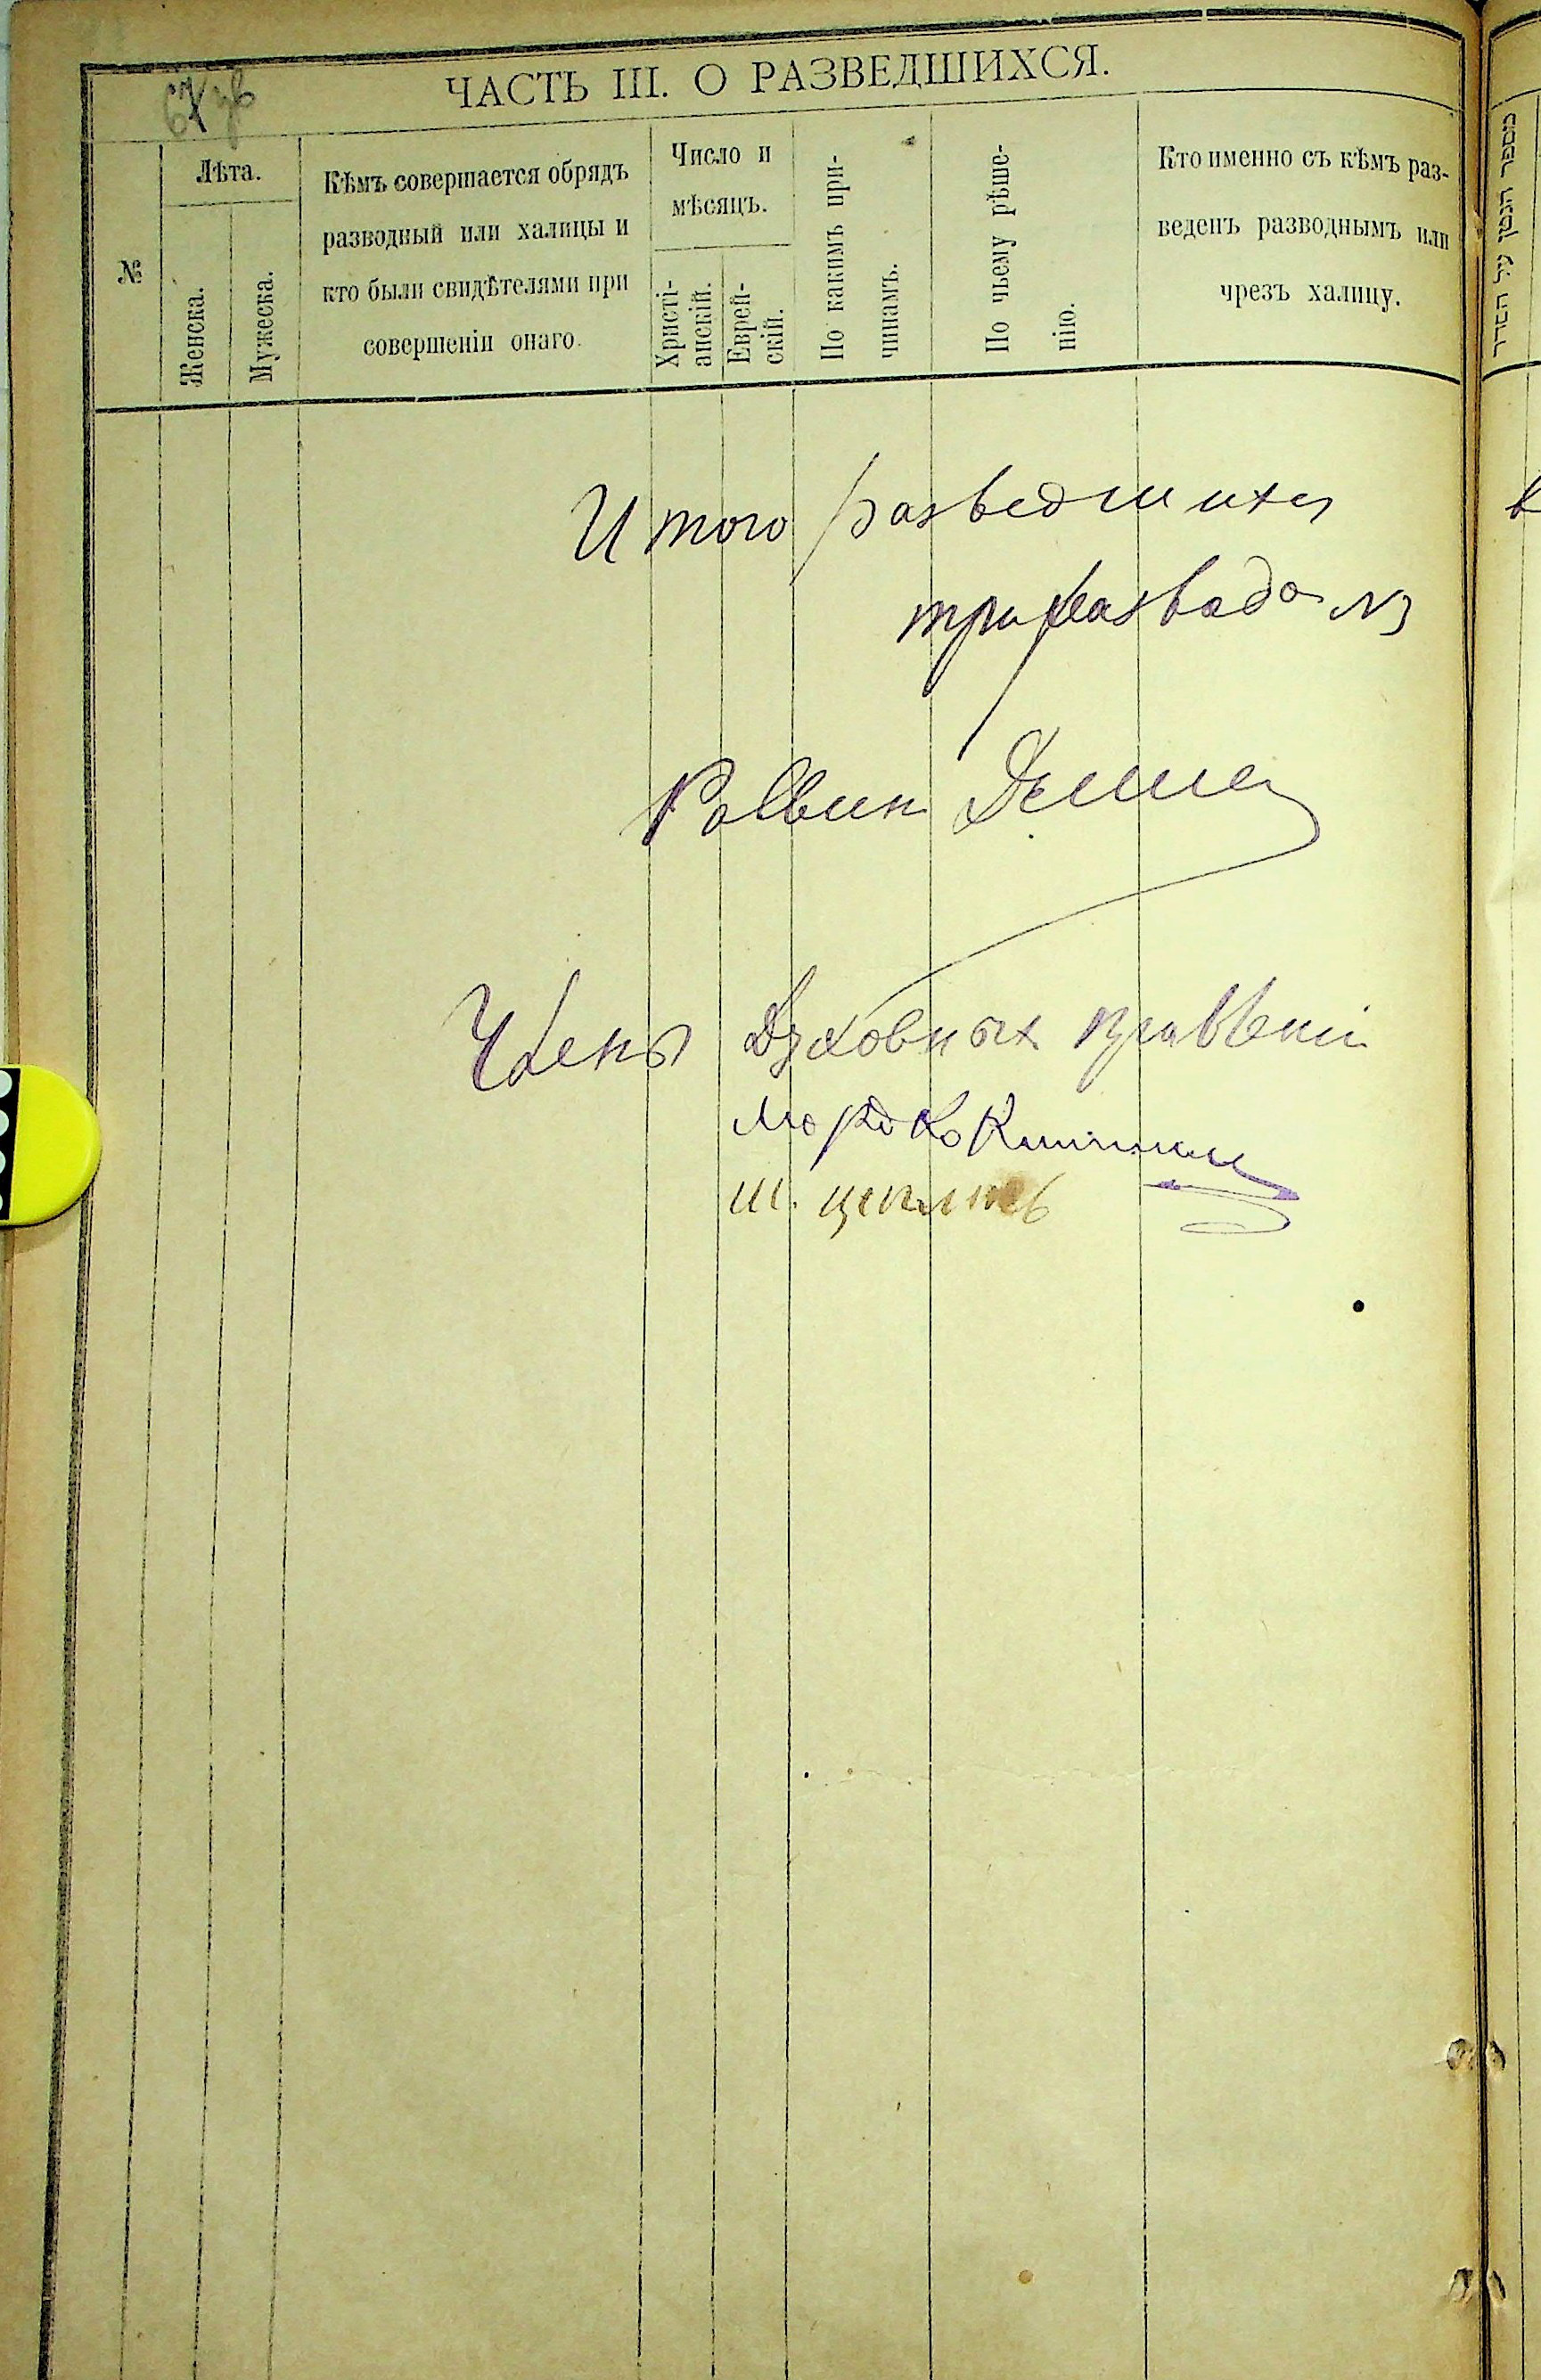 67 зв
ЧАСТЬ III. О РАЗВЕДШИХСЯ.
№
Лѣта.
Женска.
Мужеска.
Кѣмъ совершается обрядъ
разводный или халицы и
кто были свидѣтелями при
совершеніи онаго.
Число и
мѣсяцъ.
Христі-
анскій.
Еврей-
скій.
По какимъ при-
чинамъ.
По чьему рѣше-
нію.
Кто именно съ кѣмъ раз-
веденъ разводнымъ или
чрезъ халицу.
Итого разведшихся
три развода №3
Раввин
Члены Духовных правленій
Мордко
Ш.
מספר הגטן על הסדר